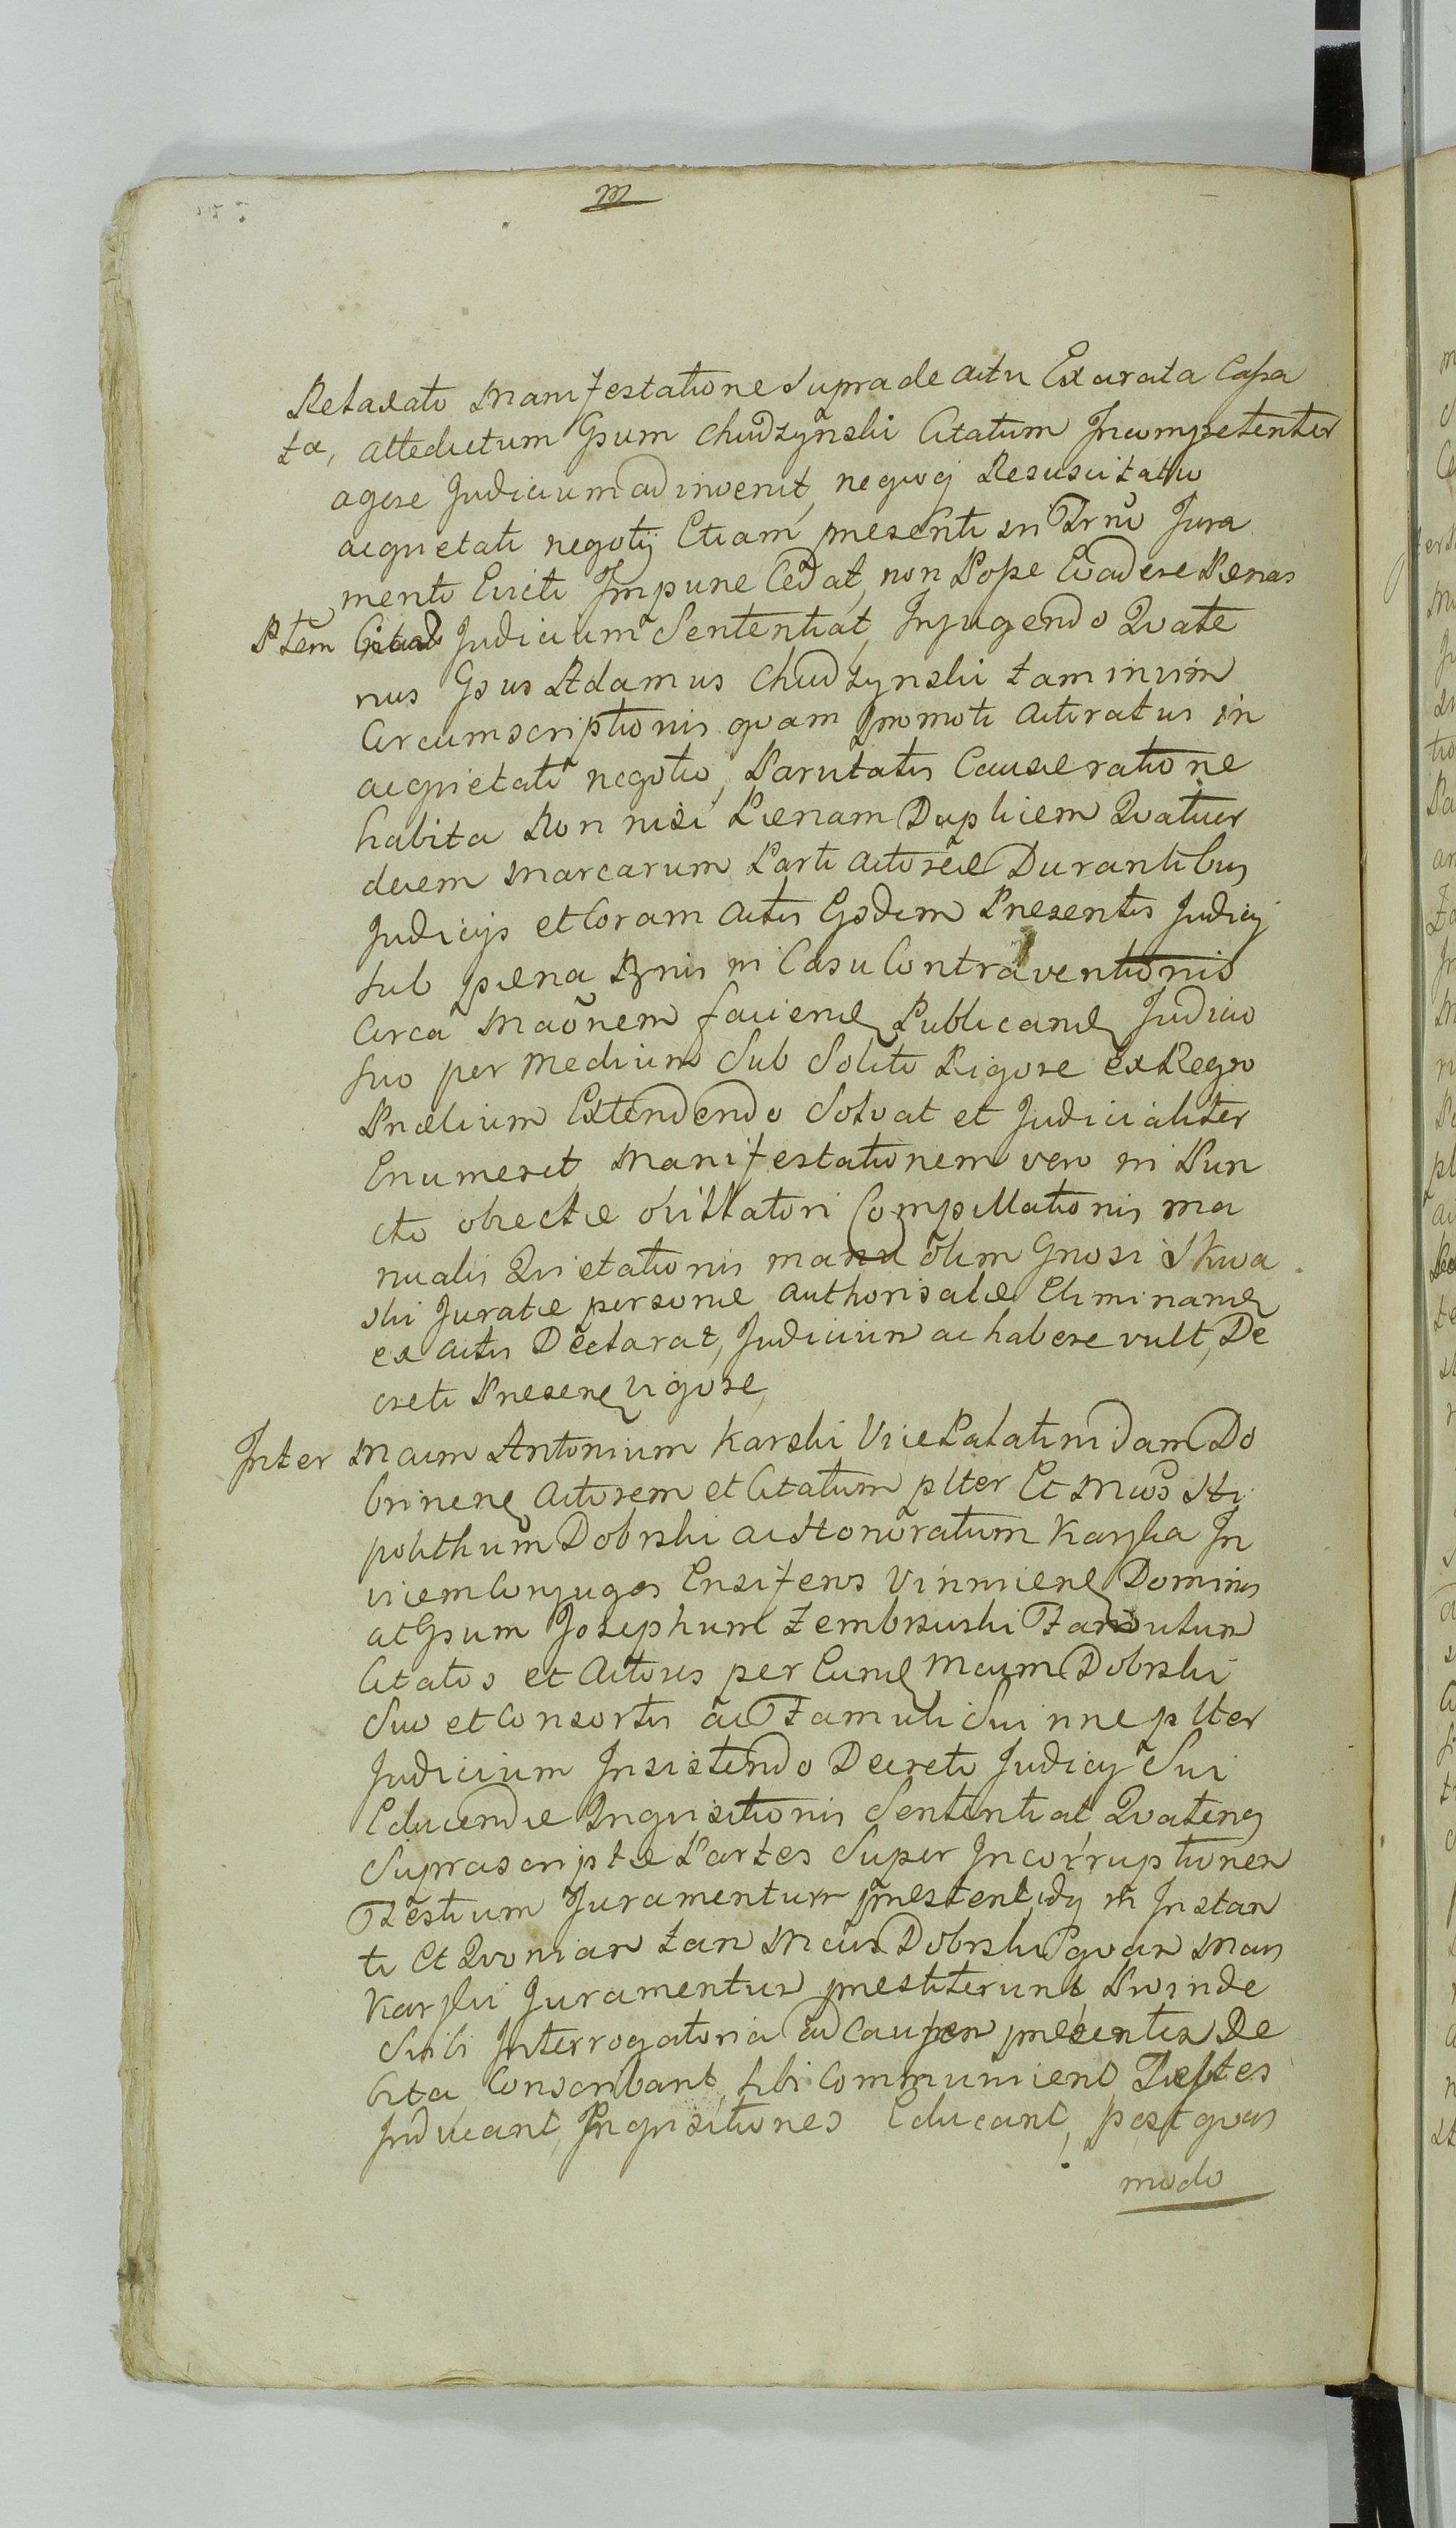 m
Relaxato Manifestatione Supradeactu Exarata Cassa
ta, attedictum Gsum Chudzynski Citatum Incompetenter
agere Judicium adinvenit, neqvoq Resuscitatio
acqvietati negotij Etiam presenti in Trno Jura
menti Evicti Impune Cedat, non Posse Evadere Penas
Ptem Judicium Sententiat, Injugendo Qvate
nus Gsus Adamus Chudzynski tam in vim
Circumscriptionis qvam promoti Actoratus in
acqvietato negotio, Paritatis Causae ratione
habita Non nisi Paenam Duplicem Qvatuor
decem Marcarum Parti Actoreae Durantibus
Judicijs et Coram Actis Gsdem Presentis Judicij
sub paena Bnis in Casu Contraventionis
Circa Maonem faciend Publicand Judicio
suo per Medium Sub Solito Rigore ex Regro
Praelium Extendendo Solvat et Judicialiter
Enumeret, Manifestationem vero in Pun
cto obiectae oblittatori Compillationis ma
nualis Qvietationis manu olim Gnosi Skwa
ski Juratae personae authorisatae Eliminand
ex actis Declarat, Judicium ac habere vult, De
creti Presen vigore,
Inter Mcum Antonium Karski Vice Palatinidam Do
brinen Actorem et Citatum plter Et Mcos Hi
polithum Dobrski ac Honoratam Karska In
vicem Conjuges Ensiferos Vinnicen Dominos
at Gsum Josephum Zembrzuski Famulum
Citatos et Actores per Eund Mcum Dobrski
Suo et Consortis ac Famuli Sui nne plter
Judicium Insistendo Decreto Judicij Sui
Educendae Inqvisitionis Sententiat Qvatenq
Suprascriptae Partes Super Incorruptionem
Testium Juramentum praestent, idq in Instan
ti Et Qvoniam tam Mcus Dobrski qvam Mcus
Karski Juramentum prestiterunt Proinde
Suibi Interrogatoria ad Causam presentem De
bita Conscribant, sibi Communicent, Testes
Inducant, Inqvisitiones Educant, postqvam
modo